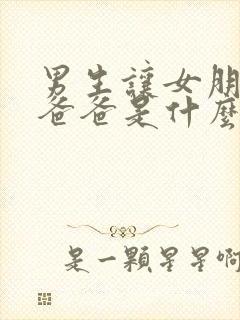 男生讓女朋
爸爸是什麼
是一顆星星啊